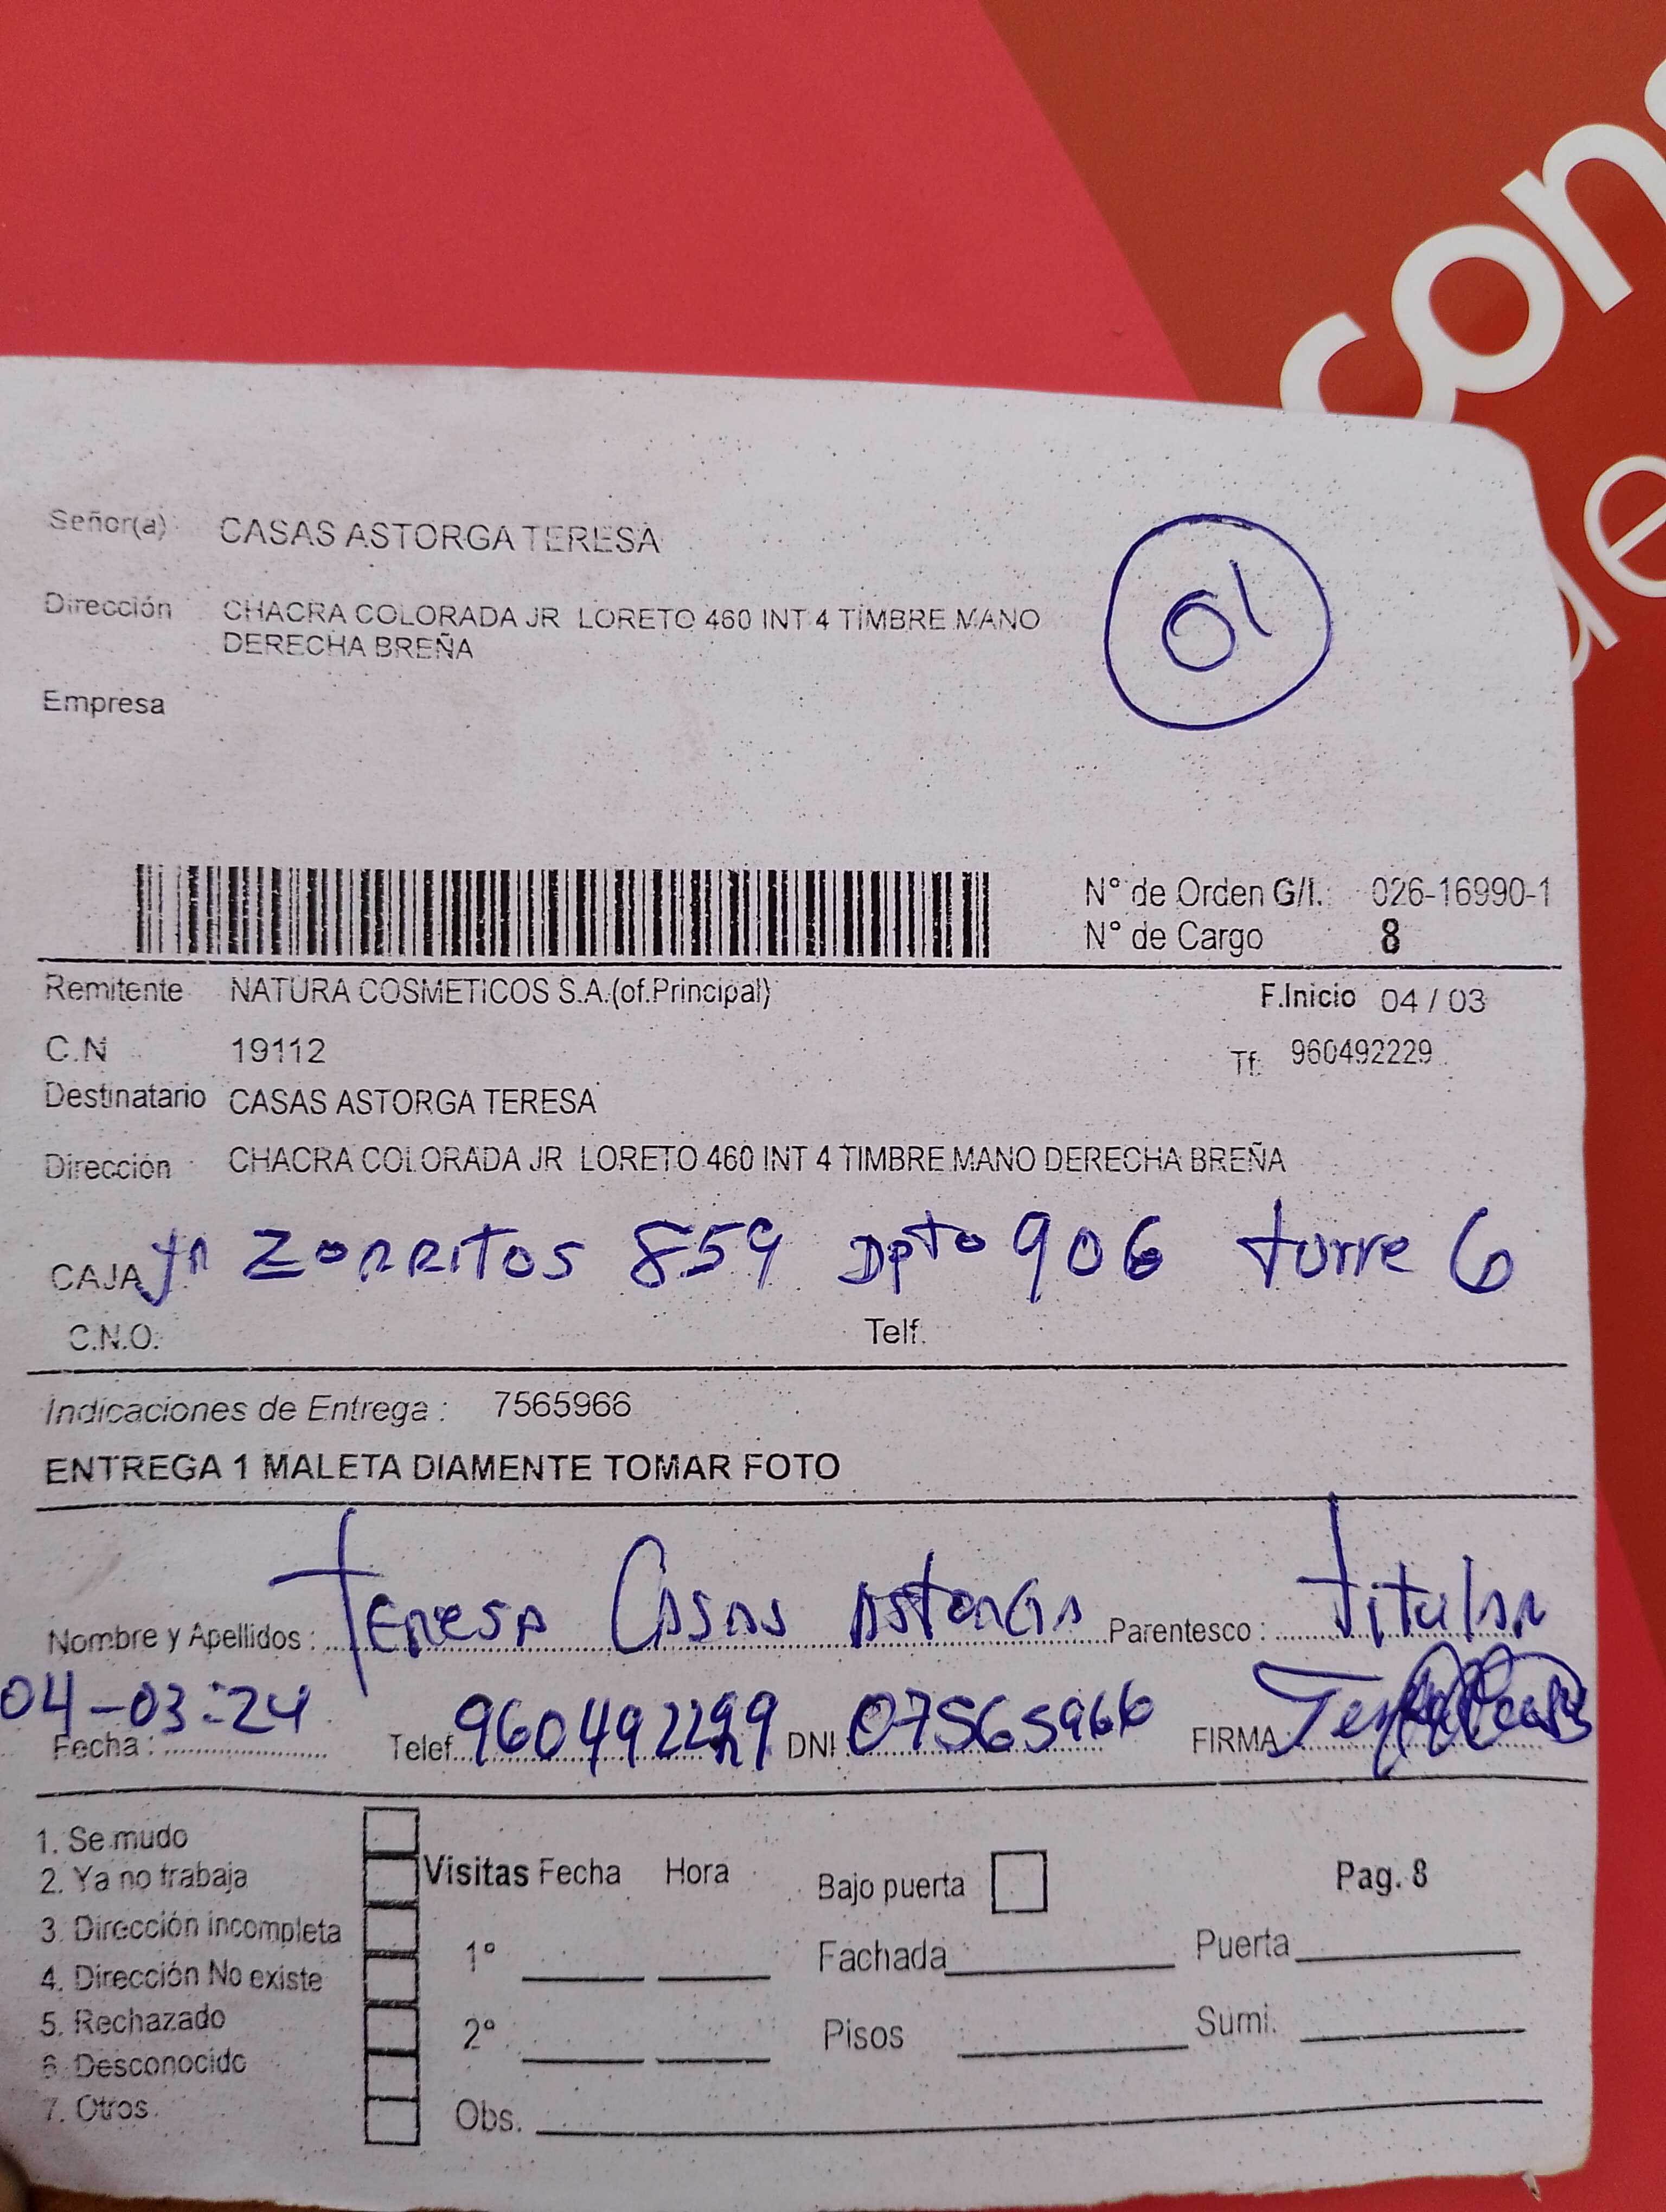 con
de
Señor(a) CASAS ASTORGA TERESA
01
Dirección CHACRA COLORADA JR LORETO 460 INT 4 TIMBRE MANO
DERECHA BREÑA
Empresa
N° de Orden G/I.: 026-16990-1
N° de Cargo 8
Remitente NATURA COSMETICOS S.A.(of.Principal) F.Inicio 04 / 03
C.N 19112 Tf: 960492229
Destinatario CASAS ASTORGA TERESA
Dirección CHACRA COLORADA JR LORETO 460 INT 4 TIMBRE MANO DERECHA BREÑA
CAJA Jr ZORRITOS 859 Dpto 906 torre 6
C.N.O: Telf.
Indicaciones de Entrega : 7565966
ENTREGA 1 MALETA DIAMENTE TOMAR FOTO
Nombre y Apellidos : Teresa Casas Astorga Parentesco : titular
Fecha : 04-03-24 Telef. 960492229 DNI 07565966 FIRMA
1. Se mudo
2. Ya no trabaja Visitas Fecha Hora Bajo puerta Pag. 8
3. Dirección incompleta 1º Fachada Puerta
4. Dirección No existe
5. Rechazado 2º Pisos Sumi.
6. Desconocido
7. Otros. Obs.